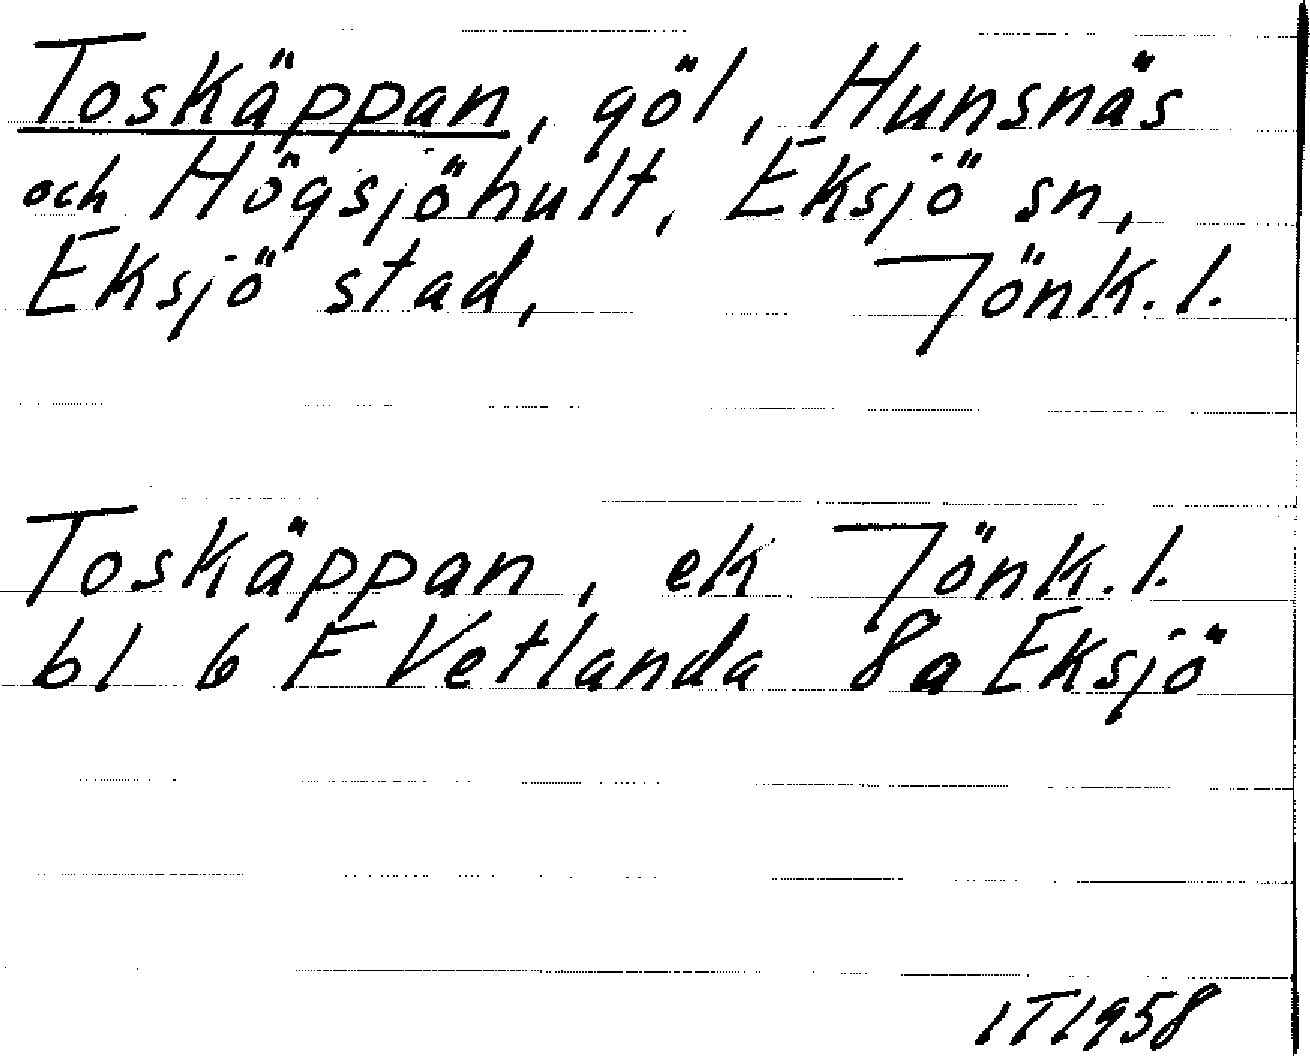 Toskäppan, göl, Hunsnäs
och Högsjöhult, Eksjö sn,
Eksjö stad, Jönk. l.
Toskäppan, ek Jönk. l.
bl 6 F Vetlanda 8a Eksjö
IT1958